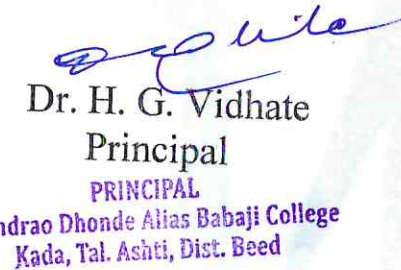 Dr. H. G. Vidhate
Principal
PRINCIPAL
ndrao Dhonde Alias Babaji College
Kada, Tal. Ashti, Dist. Beed